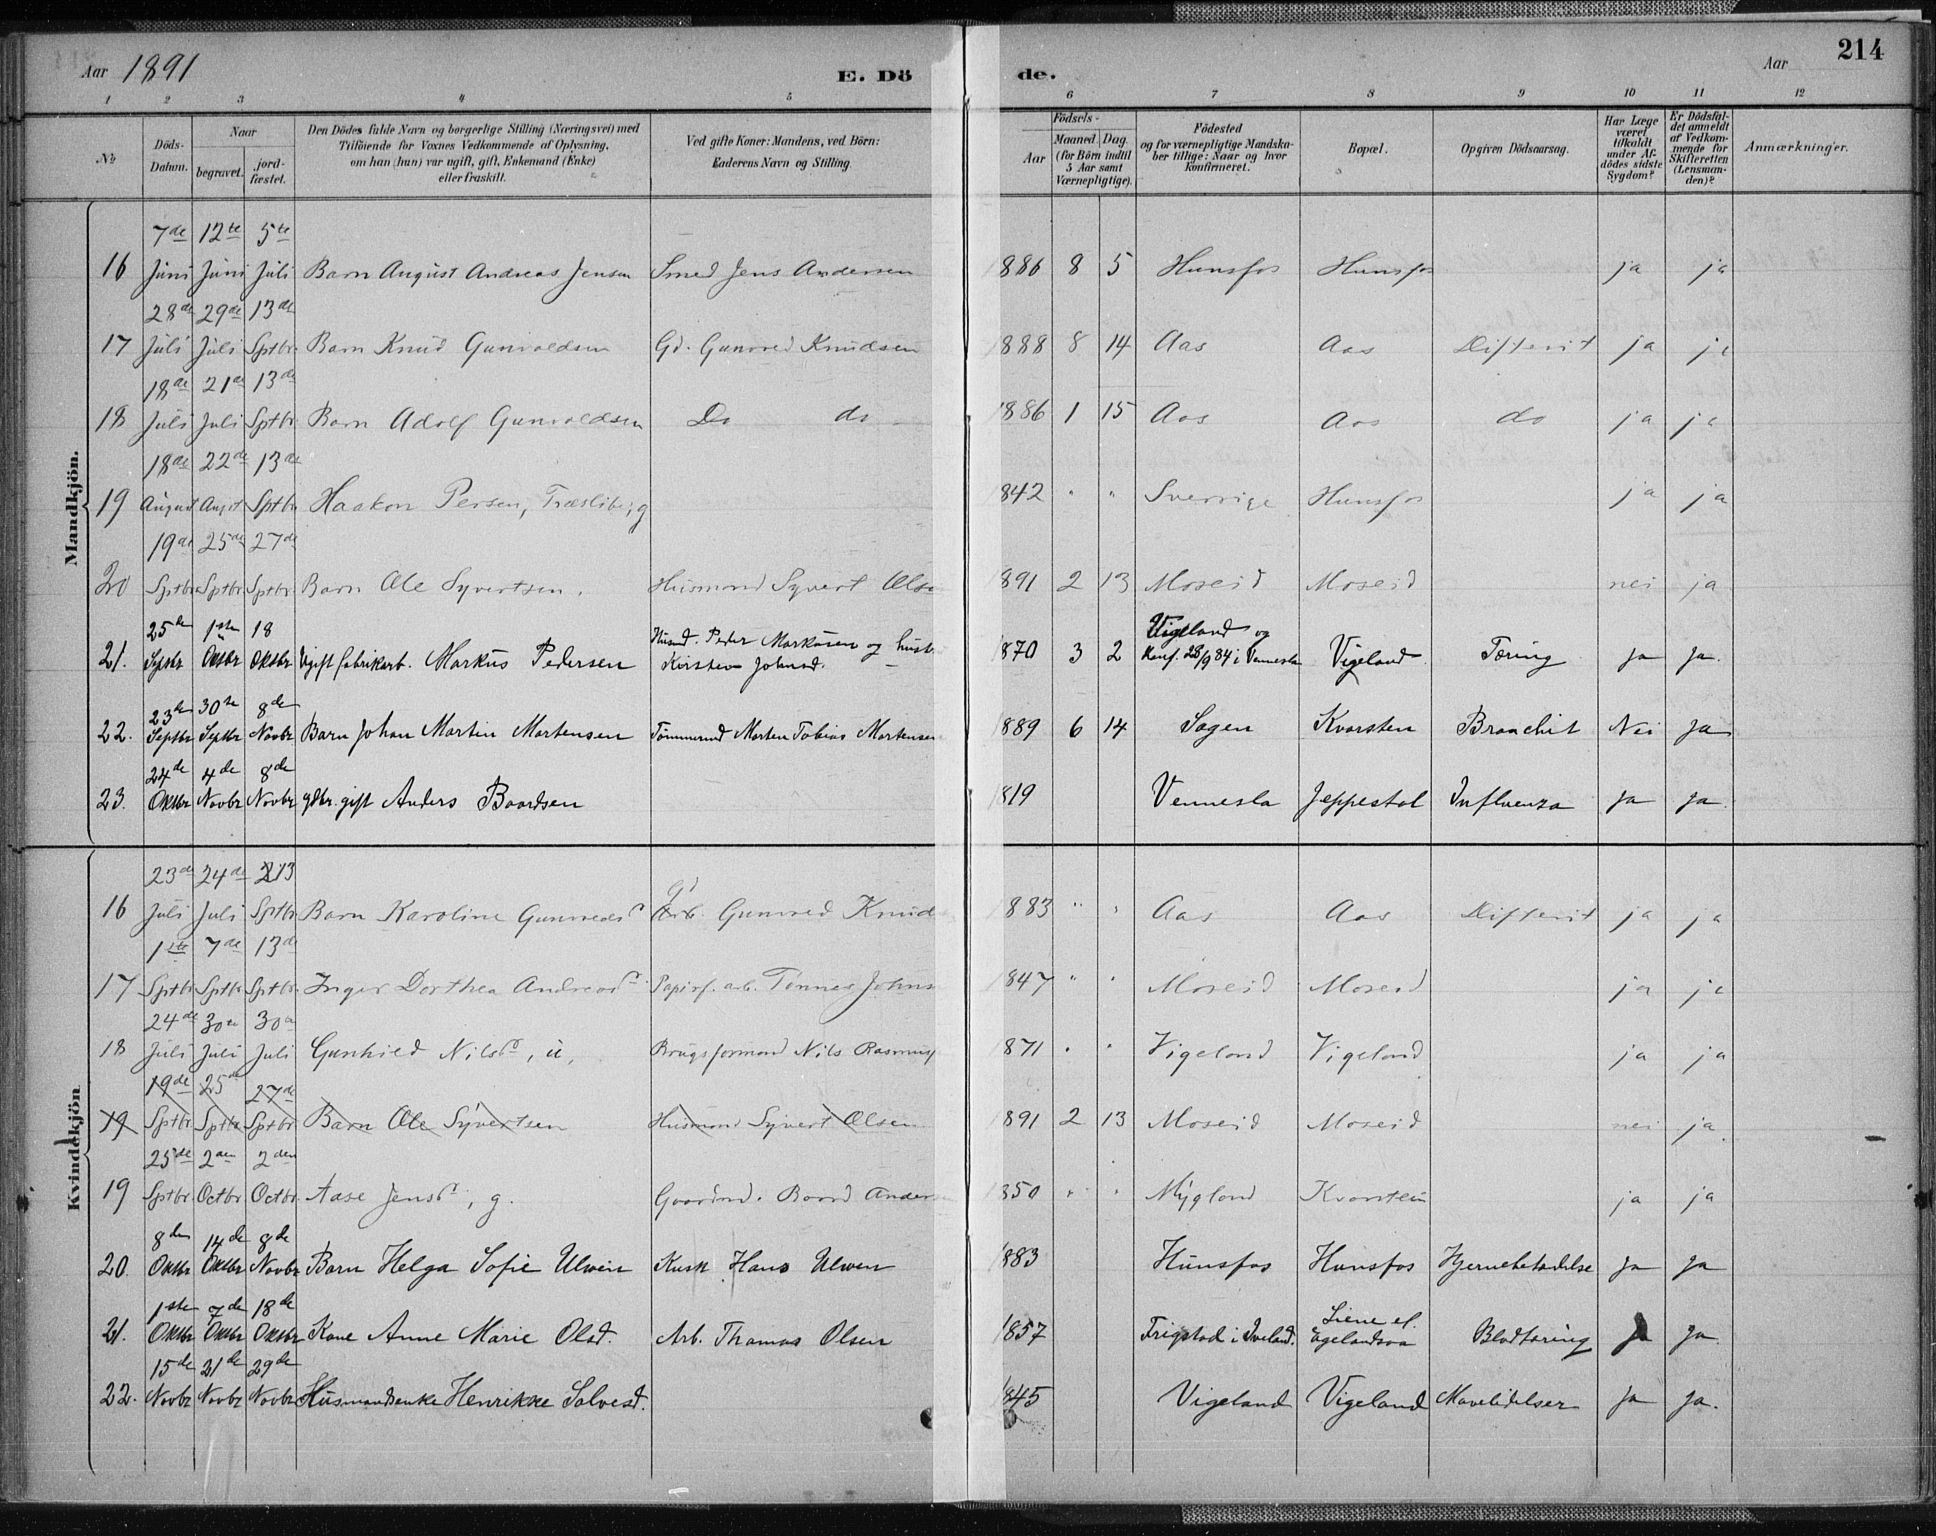 Aar 1891 E. Dö de. Aar 214
1 2 3 4 5 6 7 8 9 10 11 12
№ Döds-Datum. Naar begravet. jord-fæstet. Den Dödes fulde Navn og borgerlige Stilling (Næringsvei) med Tilföiende for Voxnes Vedkommende af Oplysning, om han (hun) var ugift, gift, Enkemand (Enke) eller fraskilt. Ved gifte Koner: Mandens, ved Börn: Faderens Navn og Stilling. Födsels- Aar Maaned. Dag. (for Börn indtil 5 Aar samt Værnepligtige). Födested og for værnepligtige Mandskaber tillige: Naar og hvor Konfirmeret. Bopæl. Opgiven Dödsaarsag. Har Læge været tilkaldt under Afdödes sidste Sygdom? Er Dödsfaldet anmeldt af Vedkommende for Skifteretten (Lensmanden)? Anmærkninger.
Mandkjön.
7de 12te 5te
16 Juni Juni Juli Barn August Andreas Jensen Smed Jens Andersen 1886 8 5 Hunsfos Hunsfos ja ja
28de 29de 13de
17 Juli Juli Sptbr. Barn Knud Gunvaldsen Gd. Gunved Knudsen 1888 8 14 Aas Aas Difterit ja ja
18de 21de 13de
18 Juli Juli Sptbr. Barn Adolf Gunvaldsen Do do 1886 1 15 Aas Aas do ja ja
18de 22de 13de
19 August Augst Sptbr Haakon Persen, Træsliber, g 842 " " Sverrige Hunsfos ja ja
19de 25de 27de
20 Sptbr. Sptbr. Sptbr. Barn Ole Syvertsen. Husmand Syvert Olse 1891 2 13 Moseid Moseid nei ja
25de 1ste 18
21. Septbr Oktbr Oktbr. Ugift fabrikarb. Markus Pedersen Husmd. Peder Markusen og hustr. Kirsten Johnsd. 870 3 2 Vigeland og Konf. 28/9 84 i Vennesla Vigeland Tæring Ja Ja.
23de 30te 8de
22. Septbr Septbr Novbr Barn Johan Martin Mortensen Tömmermd Morten Tobias Mortensen 1889 6 14 Sagen Kvarsten Bronchit Nei Ja
24de 4de 8de
23. Oktbr Novbr Novbr gdbr. gift Anders Baardsen 819 Vennesla Jeppestol Influenza Ja Ja.
Kvindekjön
23de 24de 13
16 Juli Juli Sptbr. Barn Karoline Gunvedsd. Gd Gunved Knuds 1883 " " Aas Aas Difterit ja ja
1ste 7de 13de
17 Sptbr. Sptbr. Sptbr. Inger Dorthea Andreasd. Papirf. arb. Tönnes Johns 1847 " " Moseid Moseid ja ja
24de 30te 30te
18 Juli Juli Juli Gunhild Nilsd., u, Brugsformand Nils Rasmus 871 " " Vigeland Vigeland ja ja
19de 25de 27de
19 Sptbr. Sptbr. Sptbr. Barn Ole Syvertsen Husmand Syvert Olsen 1891 2 13 Moseid Moseid nei ja.
25de 2den 2den
19 Sptbr. Octbr. Octbr. Aase Jensd., g. Gaardmd. Baard Anders 1850 " " Mygland Kvarsten ja ja
8de 14de 8de
20. Oktbr. Oktbr. Novbr Barn Helga Sofie Ulven Kusk Hans Ulven 1883 Hunsfos Hunsfos Hjernebetændelse Ja Ja
1ste 7de 18de
21. Oktbr Oktbr Oktbr Kone Anne Marie Olsd. Arb. Thomas Olsen 1857 Frigstad i Iveland. Liene el. Egelandsaa Blodtæring Ja Ja.
15de 21de 29de
22. Novbr Novbr Novbr Husmandsenke Henrikke Salvesd. 1845 Vigeland Vigeland Mavelidelser Ja Ja.